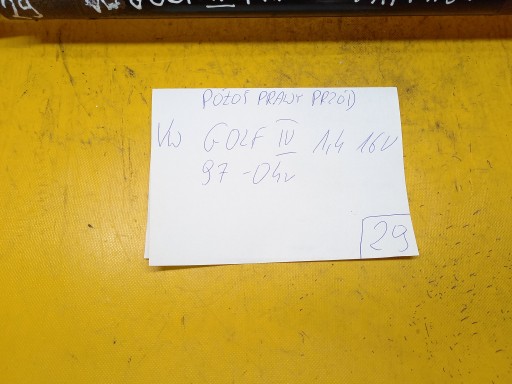 PÓŁOŚ PRAWY PRZÓD
VW GOLF IV 1,4 16V
97-04r
29